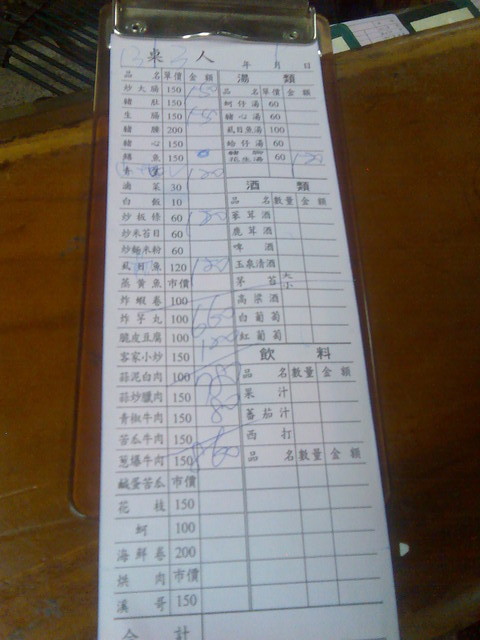 13 桌 3 人 年 月 日
品名 單價 金額
炒大腸 150 150
豬肚 150
生腸 150 150
豬腰 200
豬心 150
魷魚 150
青菜 120
滷菜 30
白飯 10
炒粄條 60 120
炒米苔目 60
炒麵米粉 60
虱目魚 120 120
蒸黃魚 市價
炸蝦卷 100
炸芋丸 100
脆皮豆腐 100
客家小炒 150
蒜泥白肉 100
蒜炒臘肉 150
青椒牛肉 150
苦瓜牛肉 150
蔥爆牛肉 150
鹹蛋苦瓜 市價
花枝 150
蚵 100
海鮮卷 200
烘肉 市價
溪哥 150
合計
湯類
品名 單價 金額
蚵仔湯 60
豬心湯 60
虱目魚湯 100
蛤仔湯 60
豬腳花生湯 60 120
酒類
品名 數量 金額
蔘茸酒
鹿茸酒
啤酒
玉泉清酒
茅苔 大 小
高梁酒
白葡萄
紅葡萄
飲料
品名 數量 金額
果汁
蕃茄汁
西打
品名 數量 金額